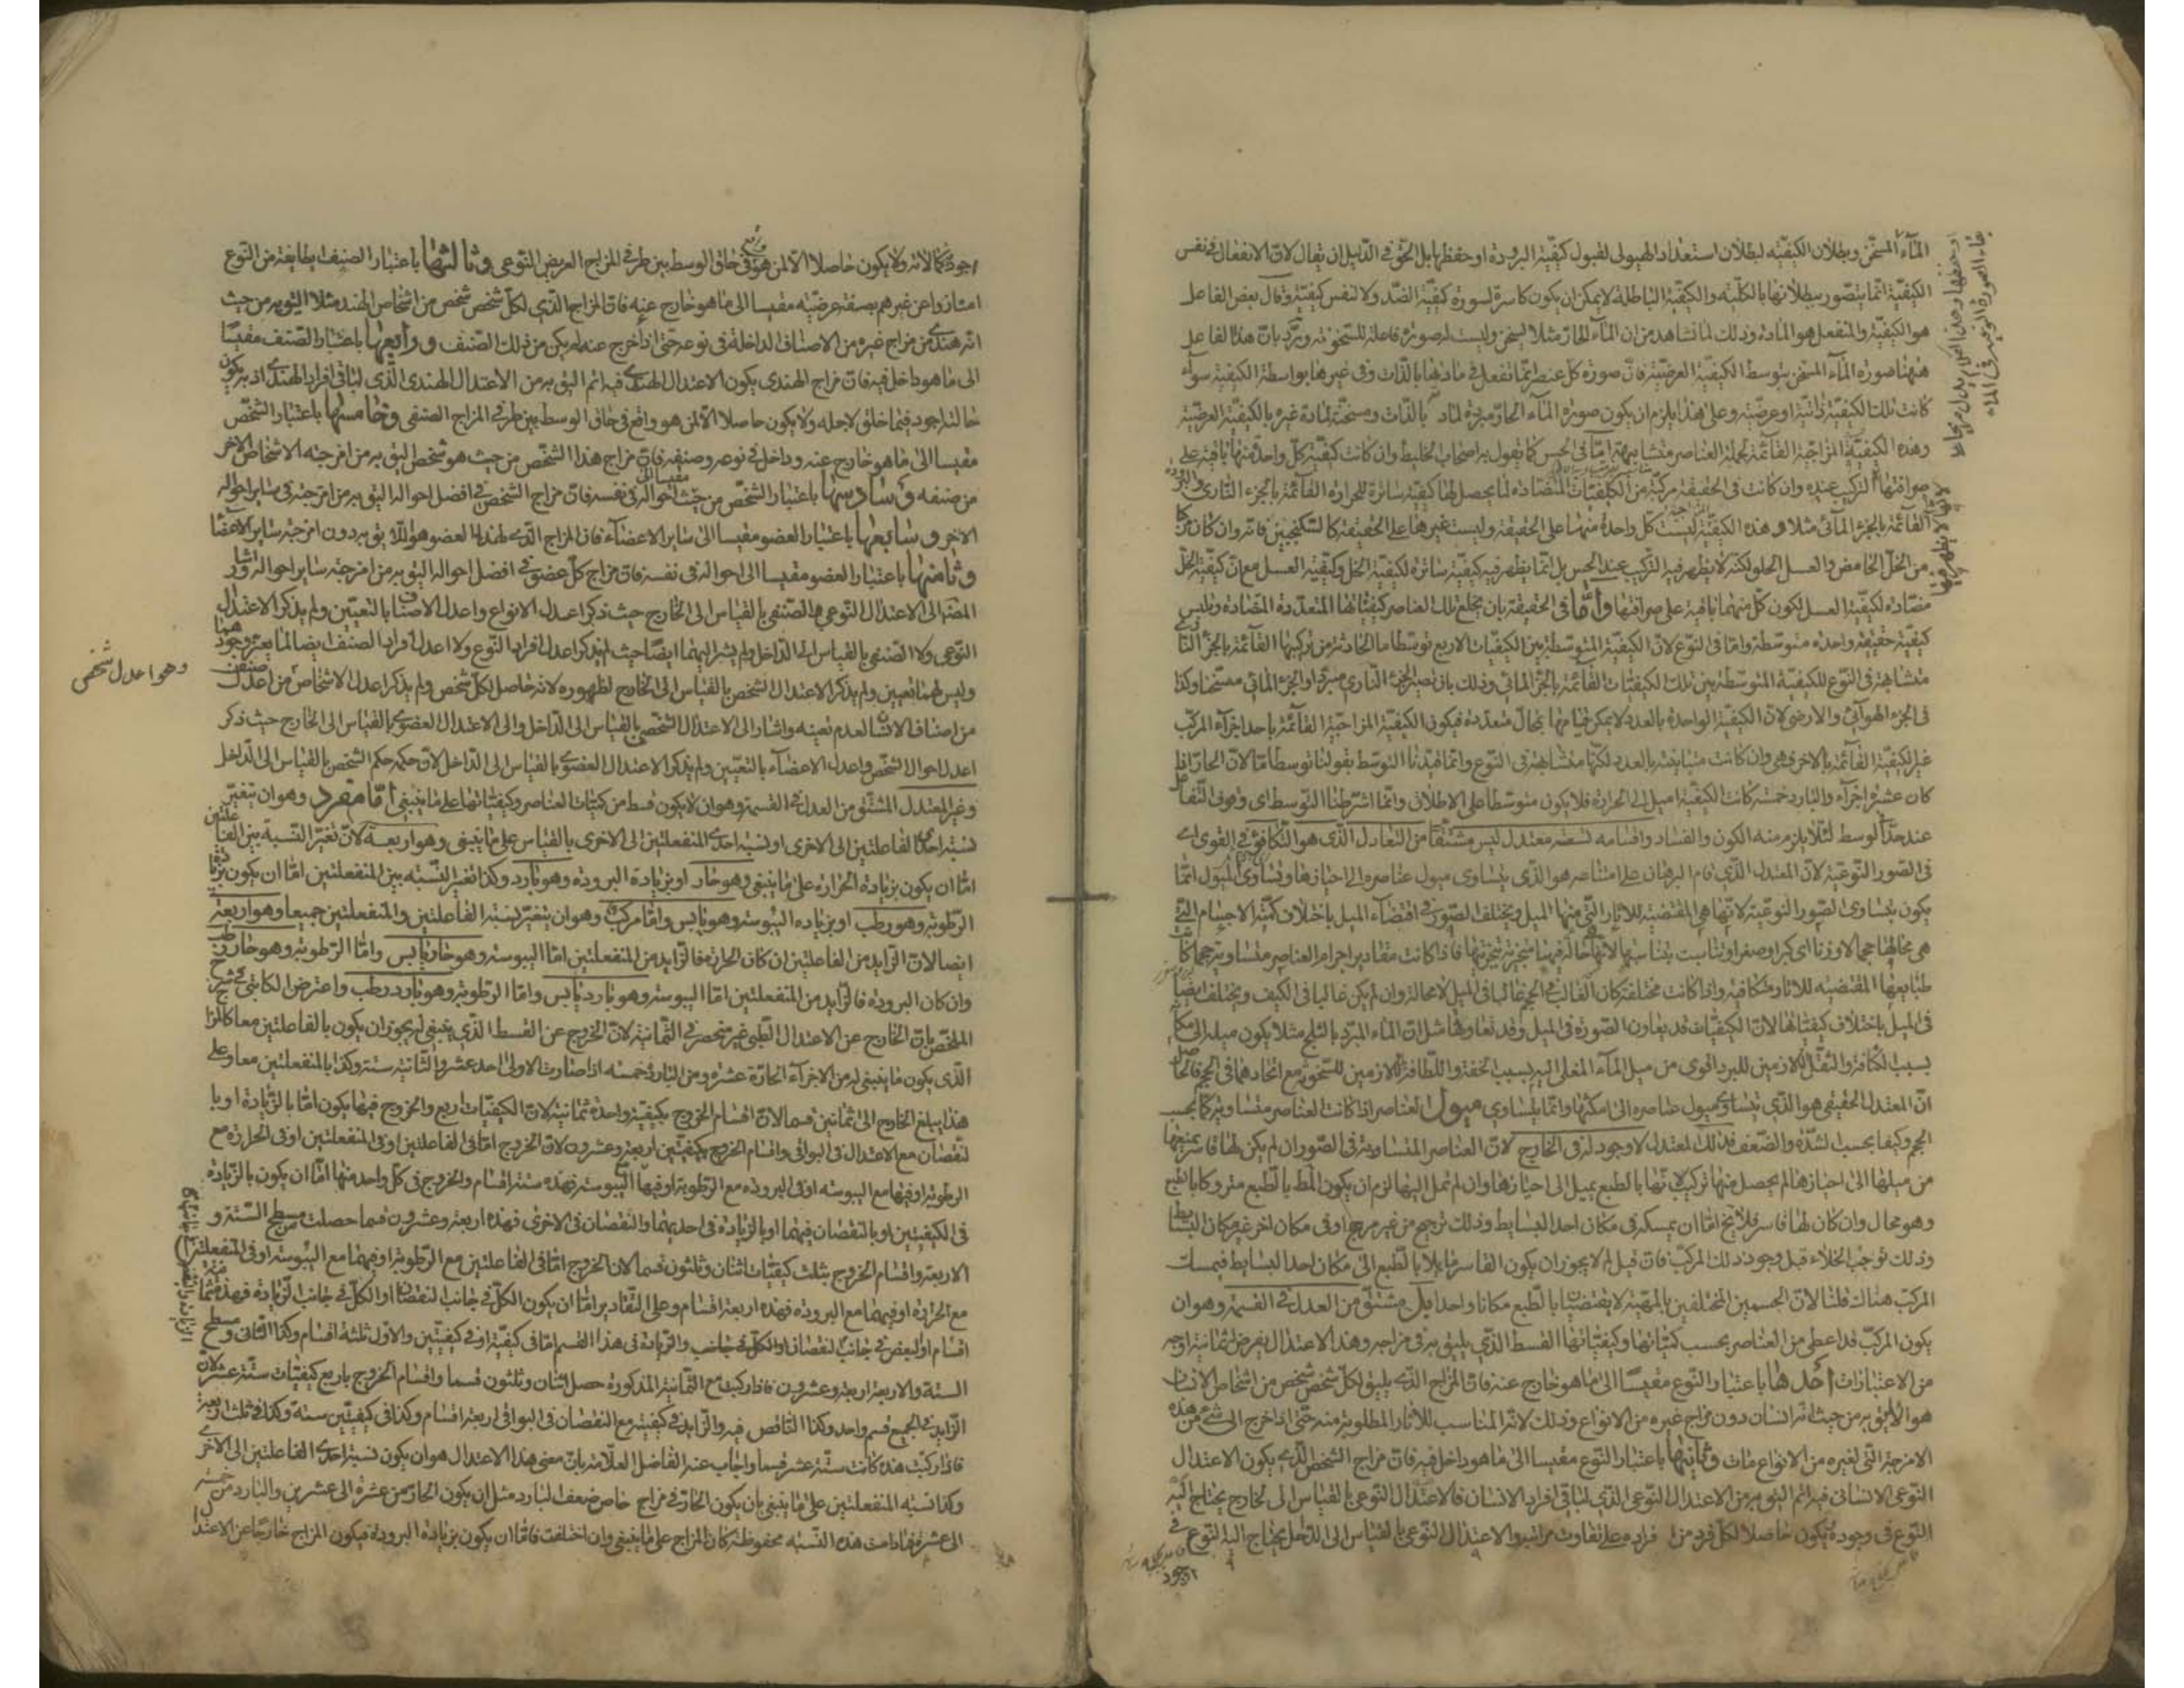 الماء المسخن وبطلان الكيفيّة لبطلان استعداد الهيولى لقبول كيفيّة البرودة او حفظها بل الحق فى الدليل ان يقال لان الانفعال فى نفس
الكيفيّة انما يتصور ببطلانها بالكلّيّة والكيفيّة الباطلة لا يمكن ان يكون كاسرة لسورة كيفيّة الضد ولا لنفس كيفيّته وقال بعض الفاعل
هو الكيفيّة والمنفعل هو المادة وذلك لما نشاهد من ان الماء الحار مثلا يسخن وليست له صورة فاعلة للسخونة وردّ بان هذا الفاعل
ههنا صورة الماء المسخن بتوسط الكيفيّة العرضيّة فان صورة كل عنصر انما تفعل فى مادتها بالذات وفى غيرها بواسطة الكيفيّة سواء
كانت تلك الكيفيّة ذاتيّة او عرضيّة وعلى هذا يلزم ان يكون صورة الماء الحار مبردة لمادته بالذات ومسخنة لمادة غيره بالكيفيّة العرضيّة
وهذه الكيفيّة المزاجيّة القائمة بجملة العناصر متشابهة امّا فى الحس كما يقول به اصحاب الخليط وان كانت كيفيّة كل واحدة منها باقية على
صرافتها لتركّب عنده وان كانت فى الحقيقة مركبة من الكيفيّات المتضادة لما يحصل لها كيفيّة ساترة للحرارة القائمة بالجزء النارى والبرودة
القائمة بالجزء المائى مثلا وهذه الكيفيّة ليست كل واحدة منهما على الحقيقة وليست غيرها على الحقيقة كالسكنجبين فانه وان كان مركبا
من الخل الحامض والعسل الحلو لكنّه لا يظهر فيه التركيب عند الحس بل انما يظهر فيه كيفيّة ساترة لكيفيّة الخل وكيفيّة العسل مع ان كيفيّة الخل
مضادة لكيفيّة العسل لكون كل منهما باقية على صرافتها وامّا فى الحقيقة بان يخلع تلك العناصر كيفيّاتها المتعددة المتضادة وتلبس
كيفيّة حقيقة واحدة متوسطة وامّا فى النوع لان الكيفيّة المتوسطة بين الكيفيّات الاربع توسطا ما الحادثة من تركيبها القائمة بالجزء النارى
متشابهة فى النوع للكيفيّة المتوسطة بين تلك الكيفيّات القائمة بالجزء المائى وذلك بان يصير الجزء النارى مبردا والجزء المائى مسخنا وكذا
فى الجزء الهوائى والارضى لان الكيفيّة الواحدة بالعدد لا يمكن قيامها بمحال متعددة فيكون الكيفيّة المزاجيّة القائمة باحد اجزاء المركب
غير الكيفيّة القائمة بالاخرى وهى وان كانت متباينة بالعدد لكنّها متشابهة فى النوع وانما قيّدنا التوسط بقولنا توسطا ما لان الحار اذا
كان عشرة اجزاء والبارد خمسة كانت الكيفيّة اميل الى الحرارة فلا يكون متوسطا على الاطلاق وانما اشترطنا التوسط اى وقوف التفاعل
عند حدّ الوسط لئلا يلزم منه الكون والفساد واقسامه تسعة معتدل ليس مشتقّا من التعادل الذى هو التكافؤ فى القوى اى
فى الصور النوعيّة لان المعتدل الذى قام البرهان على امتناعه هو الذى يتساوى ميول عناصره الى احيازها وتساوى الميول انما
يكون بتساوى الصور النوعيّة لانها هى المقتضية للاثار التى منها الميل ويختلف الصور فى اقتضاء الميل باختلاف كميّة الاجسام التى
هى محالها حجما لا وزنا اى كبرا وصغرا
طبايعها المقتضية للاثار متكافية واذا كانت مختلفة كان الغالب فى الحجم غالبا فى الميل لا محالة وان لم يكن غالبا فى الكيف ويختلف ايضا
فى الميل باختلاف كيفيّاتها لان الكيفيّات قد يعاون الصورة فى الميل وقد تعاوقها مثل ان الماء المبرد بالثلج مثلا يكون ميله الى مكانه
بسبب الكثافة والثقل اللازمين للبرد اقوى من ميل الماء المغلى اليه بسبب الخفة واللطافة اللازمين للسخونة مع اتحادهما فى الحجم فالحاصل
انّ المعتدل الحقيقى هو الذى تيساوى ميول عناصره الى امكنتها وانما يتساوى ميول العناصر اذا كانت العناصر متساوية كما بحسب
الحجم وكيفا بحسب الشدة والضعف فذلك المعتدل لا وجود له فى الخارج لان العناصر المتساوية فى الصور ان لم يكن لها قاسر يمنعها
من ميلها الى احيازها لم يحصل منها تركيب لانها بالطبع يميل الى احيازها وان لم تمل اليها لزم ان يكون المط بالطبع متروكا بالطبع
وهو محال وان كان لها قاسر فلا يخ امّا ان يمسكه فى مكان احد البسايط وذلك ترجيح من غير مرجح او فى مكان اخر غير مكان البسايط
وذلك توجب الخلاء قبل وجود ذلك المركب فان قيل لم لا يجوز ان يكون القاسر مايلا بالطبع الى مكان احد البسايط فيمسك
المركب هناك قلنا لان الجسمين المختلفين بالمهيّة لا يقتضيان بالطبع مكانا واحدا بل مشتق من العدل فى القسمة وهو ان
يكون المركب قد اعطى من العناصر بحسب كميّاتها وكيفيّاتها القسط الذى يليق به فى مزاجه وهذا الاعتدال يعرض ثمانية اوجه
من الاعتبارات احدها باعتبار النوع مقيسا الى ما هو خارج عنه فان المزاج الذى يليق لكل شخص شخص من اشخاص الانسان
هو الاليق به من حيث انه انسان دون مزاج غيره من الانواع وذلك لانه المناسب للاثار المطلوبة منه حتى اذا خرج الى شئ من هذه
الامزجة التى لغيره من الانواع مات وثانيها باعتبار النوع مقيسا الى ما هو داخل فيه فان مزاج الشخص الذى يكون الاعتدال
النوعى الانسانى فيه اتم اليق به من الاعتدال النوعى الذى لباقى افراد الانسان فالاعتدال النوعى بالقياس الى الخارج يحتاج اليه
النوع فى وجوده ويكون حاصلا لكل فرد من افراده على تفاوت مراتبه والاعتدال النوعى بالقياس الى الداخل يحتاج اليه النوع فى
اجود
اجود كمالاته ولا يكون حاصلا الا لمن هو فى حاق الوسط بين طرفى المزاج العريض النوعى وثالثها باعتبار الصنف بطايفة من النوع
امتازوا عن غيرهم بصفة عرضيّة مقيسا الى ما هو خارج عنه فان المزاج الذى لكل شخص شخص من اشخاص الهند مثلا اليق به من حيث
انه هندى من مزاج غيره من الاصناف الداخلة فى نوعه حتى اذا خرج عنه لم يكن من ذلك الصنف ورابعها باعتبار الصنف مقيسا
الى ما هو داخل فيه فان مزاج الهندى يكون الاعتدال الهندى فيه اتم اليق به من الاعتدال الهندى الذى لباقى افراد الهندى اذ به يكون
حالته اجود فيما خلق لاجله ولا يكون حاصلا الا لمن هو واقع فى حاق الوسط بين طرفى المزاج الصنفى وخامسها باعتبار الشخص
مقيسا الى ما هو خارج عنه وداخل فى نوعه وصنفه فان مزاج هذا الشخص من حيث هو شخص اليق به من امزجة الاشخاص الاخر
من صنفه وسادسها باعتبار الشخص من حيث احواله فى نفسه فان مزاج الشخص فى افضل احواله اليق به من امزجته فى ساير احواله
الاخر وسابعها باعتبار العضو مقيسا الى ساير الاعضاء فان المزاج الذى لهذا العضو هو اللايق به دون امزجة ساير الاعضاء
وثامنها باعتبار العضو مقيسا الى احواله فى نفسه فان مزاج كل عضو فى افضل احواله اليق به من امزجته ساير احواله واشار
المصّ الى الاعتدال النوعى والصنفى بالقياس الى الخارج حيث ذكر اعدل الانواع واعدل الاصناف بالتعيين ولم يذكر الاعتدال
النوعى ولا الصنفى بالقياس الى الداخل ولم يشر اليهما ايضا حيث لم يذكر اعدل افراد النوع ولا اعدل افراد الصنف ايضا لما يعز وجودهما
وليس لهما تعيين ولم يذكر الاعتدال الشخصى بالقياس الى الخارج لظهوره لانه حاصل لكل شخص ولم يذكر اعدل الاشخاص من اعدل صنف
من اصناف الانسان لعدم تعينه واشار الى الاعتدال الشخصى بالقياس الى الداخل والى الاعتدال العضوى بالقياس الى الخارج حيث ذكر
اعدل احوال الشخص واعدل الاعضاء بالتعيين ولم يذكر الاعتدال العضوى بالقياس الى الداخل لان حكمه حكم الشخص بالقياس الى الداخل
وغير المعتدل المشتق من العدل فى القسمة وهو ان لا يكون قسط من كميّات العناصر وكيفيّاتها على ما ينبغى امّا مفرد وهو ان يتغيّر
نسبة احدى الفاعلتين الى الاخرى او نسبة احدى المنفعلتين الى الاخرى بالقياس على ما ينبغى وهو اربعة لان تغيّر النسبة بين الفاعلتين
امّا ان يكون بزيادة الحرارة على ما ينبغى وهو حار او بزيادة البرودة وهو بارد وكذا تغير النسبة بين المنفعلتين امّا ان يكون بزيادة
الرطوبة وهو رطب او بزيادة اليبوسة وهو يابس وامّا مركب وهو ان يتغيّر نسبة الفاعلتين والمنفعلتين جميعا وهو اربعة
ايضا لان الزايد من الفاعلتين ان كان الحرارة فالزايد من المنفعلتين امّا اليبوسة وهو حار يابس وامّا الرطوبة وهو حار رطب
وان كان البرودة فالزايد من المنفعلتين امّا اليبوسة وهو بارد يابس وامّا الرطوبة وهو بارد رطب واعترض الكاتبى فى شرح
الملخص بان الخارج عن الاعتدال الطبى غير منحصر فى الثمانية لان الخروج عن القسط الذى ينبغى له يجوز ان يكون بالفاعلتين معا كالمزاج
الذى يكون ما ينبغى له من الاجزاء الحارة عشرة ومن الباردة خمسة اذا صارت الاولى احد عشر والثانية ستة وكذا بالمنفعلتين معا وعلى
هذا يبلغ الخارج الى ثمانين قسما لان اقسام الخروج بكيفيّة واحدة ثمانية لان الكيفيّات اربع والخروج فيها يكون امّا بالزيادة او با
لنقصان مع الاعتدال فى البواقى واقسام الخروج بكيفيّتين اربعة وعشرون لان الخروج امّا فى الفاعلتين او فى المنفعلتين او فى الحرارة مع
الرطوبة او فيها مع اليبوسة او فى البرودة مع الرطوبة او فيها مع اليبوسة فهذه ستة اقسام والخروج فى كل واحد منها امّا ان يكون بالزيادة
فى الكيفيّتين او بالنقصان فيهما او بالزيادة فى احديهما والنقصان فى الاخرى فهذه اربعة وعشرون قسما حصلت من سطح الستة و
الاربعة واقسام الخروج بثلث كيفيّات اثنان وثلثون قسما لان الخروج امّا فى الفاعلتين مع الرطوبة او فيهما مع اليبوسة او فى المنفعلتين
مع الحرارة او فيهما مع البرودة فهذه اربعة اقسام وعلى التقادير امّا ان يكون الكل فى جانب النقصان او الكل فى جانب الزيادة فهذه ثمانية
اقسام او البعض فى جانب النقصان والزيادة فى هذا القسم امّا فى كيفيّة او فى كيفيّتين والاول ثلثة اقسام وكذا الثانى وسطح
الستة والاربعة اربعة وعشرون فاذا ركبت مع الثمانية المذكورة حصل اثنان وثلثون قسما واقسام الخروج باربع كيفيّات ستة عشر لان
الزايد فى الجميع قسم واحد وكذا الناقص فيه والزايد فى كيفيّة مع النقصان فى البواقى اربعة اقسام وكذا فى كيفيّتين ستة وكذا فى ثلث اربعة
فاذا ركبت هذه كانت ستة عشر قسما واجاب عنه الفاضل العلامة بان معنى هذا الاعتدال هو ان يكون نسبة احدى الفاعلتين الى الاخرى
وكذا نسبة المنفعلتين على ما ينبغى بان يكون الحار فى مزاج خاص ضعف البارد مثل ان يكون الحار من عشرة الى عشرين والبارد من خمسة
الى عشرة فما دامت هذه النسبة محفوظة كان المزاج على ما ينبغى وان اختلفت فامّا ان يكون بزيادة البرودة فيكون المزاج خارجا عن الاعتدال
وهو اعدل شخص